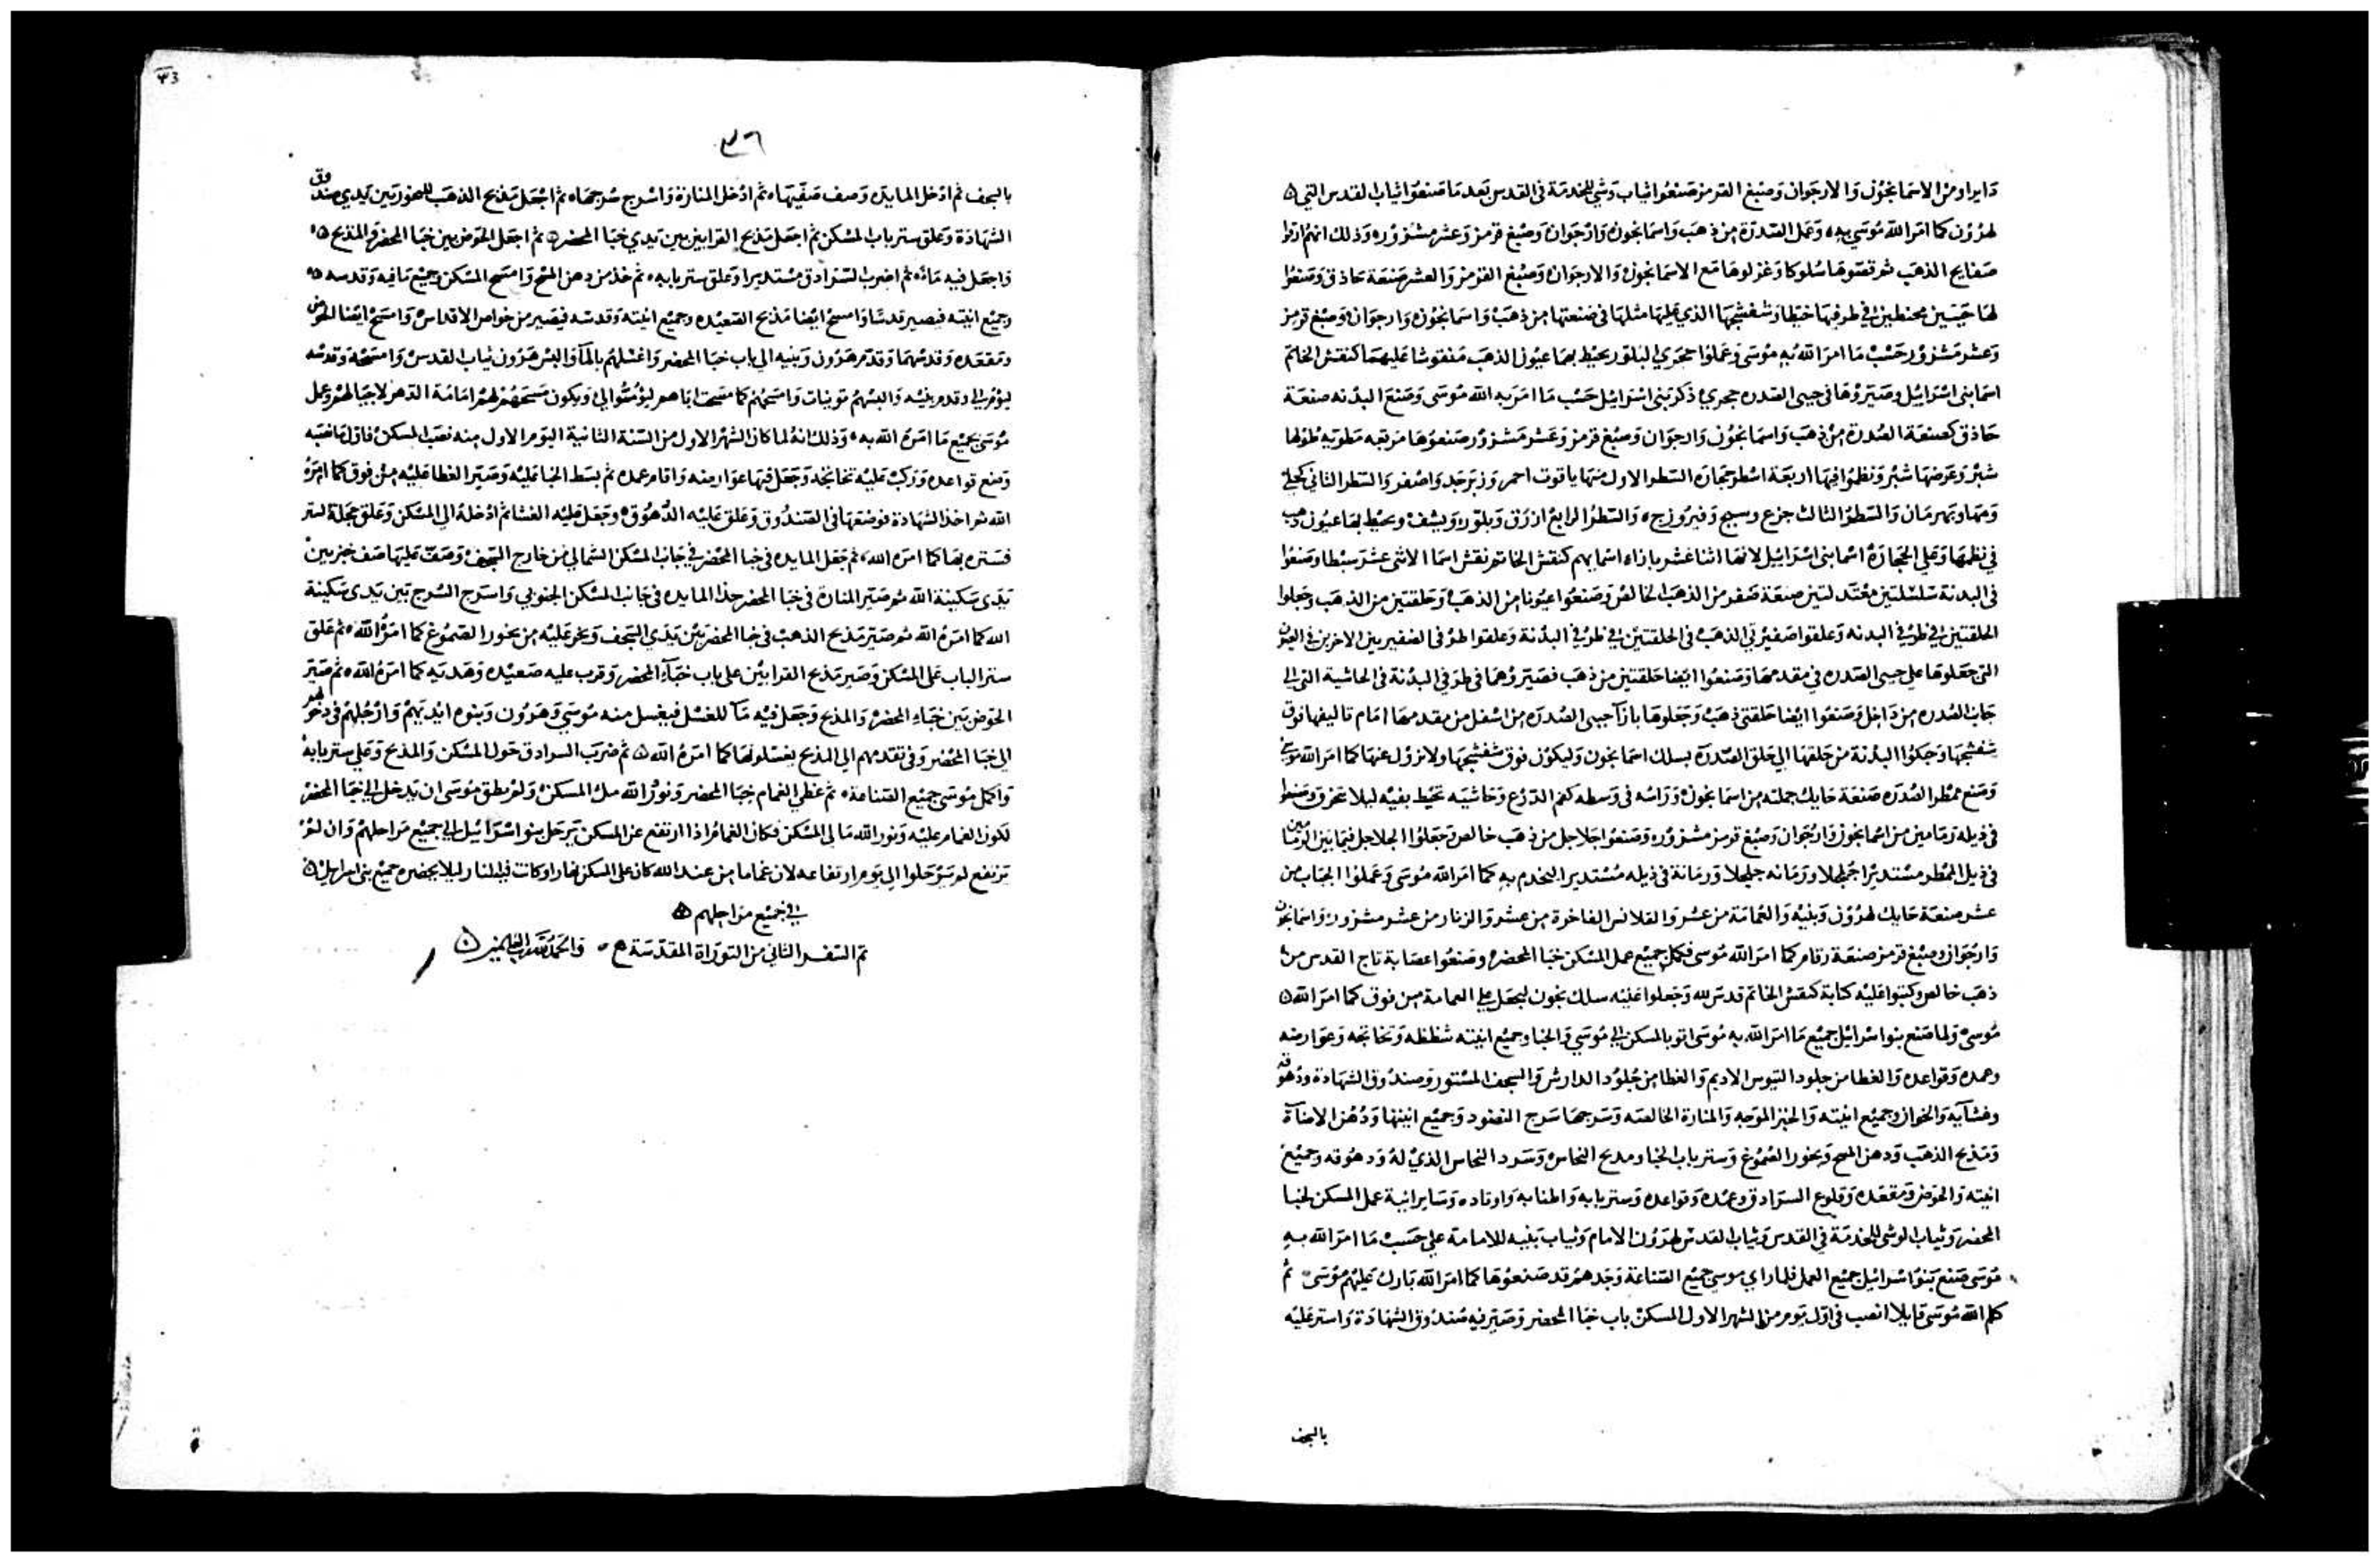 وايرادمن الاسمانجون والارجوان وصبغ القرمز صنعوا ثياب وشي للخدمة في القدس بعد ما صنعوا ثياب القدس التي
لهرون كما امر الله موسي به وعمل الصدرة من ذهب واسمانجون وارجوان وصبغ قرمز وعشر مشزور وذلك انهم
صفايح الذهب ثم قصوها سلوكا وغزلوها مع الاسمانجون والارجوان وصبغ القرمز والعشر صنعة حاذق وصنعوا
لها جيبين محيطين في طرفيها خيطا وشفشجها الذي عليها مثلها في صنعتها من ذهب واسمانجون وارجوان وصبغ قرمز
وعشر مشزور حسب ما امر الله به موسي وعملوا حجري البلور يحيط بهما عيون الذهب منقوشا عليهما كنقش الخاتم
اسما بني اسرايل وصيروها في جيبي الصدره حجري ذكر بني اسرايل حسب ما امر به الله موسي وصنع البدنه صنعة
حاذق كصنعة الصدرة من ذهب واسمانجون وارجوان وصبغ قرمز وعشر مشزور صنعوها مربعه مطويه طولها
شبر وعرضها شبر ونظموا فيها اربعة اسطر حجاره السطر الاول منها ياقوت احمر وزبرجد واصفر والسطر الثاني كحلي
ومها وبهرمان والسطر الثالث جزع وسبج وفيروزج والسطر الرابع ازرق وبلور ويشف ويحيط بها عيون ذهب
في نظمها وعلي الحجارة اسما بني اسرايل لانها اثنا عشر بازاء اسمايهم كنقش الخاتم نقش اسما الاثني عشر سبطا وصنعوا
في البدنة سلسلتين معتدلتين صنعة ضفر من الذهب الخالص وصنعوا عيونا من الذهب وحلقتين من الذهب وجعلوا
الحلقتين في طرفي البدنه وعلقوا ضفيرتي الذهب في الحلقتين في طرفي البدنة وعلقوا طرفي الضفيرتين الاخرين في العيون
التي جعلوها علي جيبي الصدره في مقدمها وصنعوا ايضا حلقتين من ذهب فصيروهما في طرفي البدنة في الحاشية التي الي
جانب الصدره من داخل وصنعوا ايضا حلقتي ذهب وجعلوها بازآ جيبي الصدره من اسفل من مقدمها امام تاليفها فوق
شفشجها وحبكوا البدنة من حلقها الي حلق الصدرة بسلك اسمانجون وليكون فوق شفشجها ولا تزول عنها كما امر الله موسي
وصنع ممطر الصدره صنعة حايك جملته من اسمانجون وراسه في وسطه كفم الدرع وحاشيه تحيط بفيه ليلا تخرق وصنعوا
في ذيله رمامين من اسمانجون وارجوان وصبغ قرمز مشزور وصنعوا جلاجل من ذهب خالص وجعلوا الجلاجل فيما بين الرمامين
في ذيل الممطر مستديرا جلجلا ورمانه جلجلا ورمانة في ذيله مستديرا ليخدم به كما امر الله موسي وعملوا الجباب من
عشر صنعة حايك لهرون وبنيه والعمامة من عشر والقلانس الفاخرة من عشر والزنار من عشر مشزور واسمانجون
وارجوان وصبغ قرمز صنعة رقام كما امر الله موسي فكمل جميع عمل المسكن خبا المحضر وصنعوا عصابة تاج القدس من
ذهب خالص وكتبوا عليه كتابة كنقش الخاتم قدس لله وجعلوا عليه سلك نجون ليجعل علي العمامة من فوق كما امر الله
موسي ولما صنع بنو اسرايل جميع ما امر الله به موسي اتوا بالمسكن الي موسي والخبا وجميع انيته شظظه وتخاتجه وعوارضه
وعمده وقواعده والغطا من جلود التيوس الاديم والغطا من جلود الدارش والسجف المستور وصندوق الشهادة ودهوقه
وغشايه والخوان وجميع انيته والخبز الموجه والمنارة الخالصه وسرجها سرج النضود وجميع انيتها ودهن الاضآة
ومذبح الذهب ودهن المسح وبخور الصموغ وستر باب الخبا ومذبح النحاس وسرد النحاس الذي له ودهوقه وجميع
انيته والحوض ومقعده وقلوع السرادق وعمده وقواعده وستر بابه واطنابه واوتاده وساير انية عمل المسكن لخبا
المحضر وثياب الوشي للخدمة في القدس وثياب القدس لهرون الامام وثياب بنيه للامامة علي حسب ما امر الله به
موسي صنع بنو اسرايل جميع العمل فلما راي موسي جميع الصناعة وجدهم قد صنعوها كما امر الله بارك عليهم موسي ثم
كلم الله موسي قايلا انصب في اول يوم من الشهر الاول المسكن باب خبا المحضر وصير فيه صندوق الشهادة واستر عليه
بالسجف
٣٦
بالسجف ثم ادخل المايده وصف صفيها ثم ادخل المنارة واسرج سرجها ثم اجعل مذبح الذهب للبخور بين يدي صندوق
الشهادة وعلق ستر باب المسكن ثم اجعل مذبح القرابين بين يدي خبا المحضر ثم اجعل الحوض بين خبا المحضر والمذبح
واجعل فيه ماء ثم اضرب السرادق مستديرا وعلق ستر بابه ثم خذ من دهن المسح وامسح المسكن وجميع ما فيه وقدسه
وجميع انيته فيصير قدسا وامسح ايضا مذبح الصعيده وجميع انيته وقدسه فيصير من خواص الاقداس وامسح ايضا الحوض
ومقعده وقدسهما وقدم هرون وبنيه الي باب خبا المحضر واغسلهم بالمآ والبس هرون ثياب القدس وامسحه وقدسه
ليؤم لي وقدم بنيه والبسهم تونيات وامسحهم كما مسحت اباهم ليؤموا لي ويكون مسحهم لهم امامة الدهر لاجيالهم وعمل
موسي بجميع ما امره الله به وذلك انه لما كان الشهر الاول من السنة الثانية اليوم الاول منه نصب المسكن فاول ما نصبه
وضع قواعده وركب عليه تخاتجه وجعل فيها عوارضه واقام عمده ثم بسط الخبا عليه وصير الغطا عليه من فوق كما امره
الله ثم اخذ الشهادة فوضعها في الصندوق وعلق عليه الدهوق وجعل عليه الغشا ثم ادخله الي المسكن وعلق حجلة الستر
فستره بها كما امره الله ثم جعل المايده في خبا المحضر في جانب المسكن الشمالي من خارج السجف وصف عليها صف خبز بين
يدي سكينة الله ثم صير المنارة في خبا المحضر حذا المايده في جانب المسكن الجنوبي واسرج السرج بين يدي سكينة
الله كما امره الله ثم صير مذبح الذهب في خبا المحضر بين يدي السجف وبخر عليه من بخور الصموغ كما امره الله ثم علق
ستر الباب علي المسكن وصير مذبح القرابين علي باب خبآء المحضر وقرب عليه صعيده وهديه كما امره الله ثم صير
الحوض بين خباء المحضر والمذبح وجعل فيه مآ للغسل فيغسل منه موسي وهرون وبنوه ايديهم وارجلهم في دخولهم
الي خبا المحضر وفي تقدمهم الي المذبح يغسلونها كما امره الله ثم ضرب السرادق حول المسكن والمذبح وعلي ستر بابه
واكمل موسي جميع الصناعة ثم غطي الغمام خبا المحضر ونور الله ملا المسكن ولم يطق موسي ان يدخل الي خبا المحضر
لكون الغمام عليه ونور الله مالي المسكن فكان الغمام اذا ارتفع عن المسكن يرحل بنو اسرايل في جميع مراحلهم وان لم
يرتفع لم يرحلوا الي يوم ارتفاعه لان غماما من عند الله كان علي المسكن نهارا وكانت فيه النار ليلا بحضره جميع بني اسرايل
في جميع مراحلهم
تم السفر الثاني من التوراة المقدسة والحمد لله رب العالمين